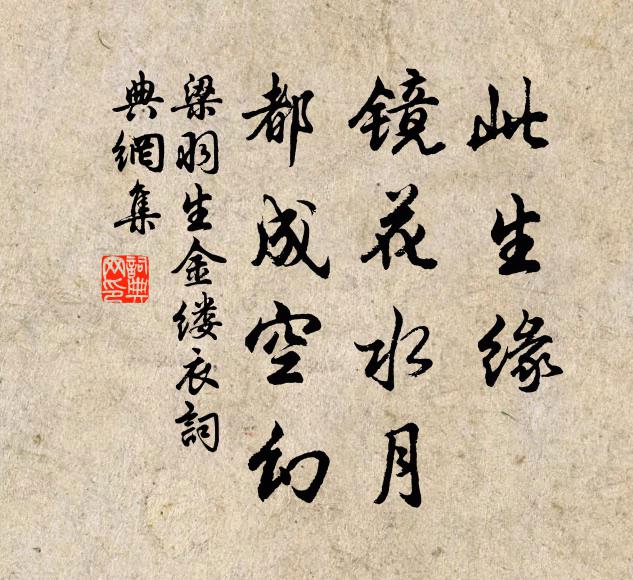 此生缘
镜花水月
都成空幻
梁羽生金缕衣詞
典網集
詞典網印